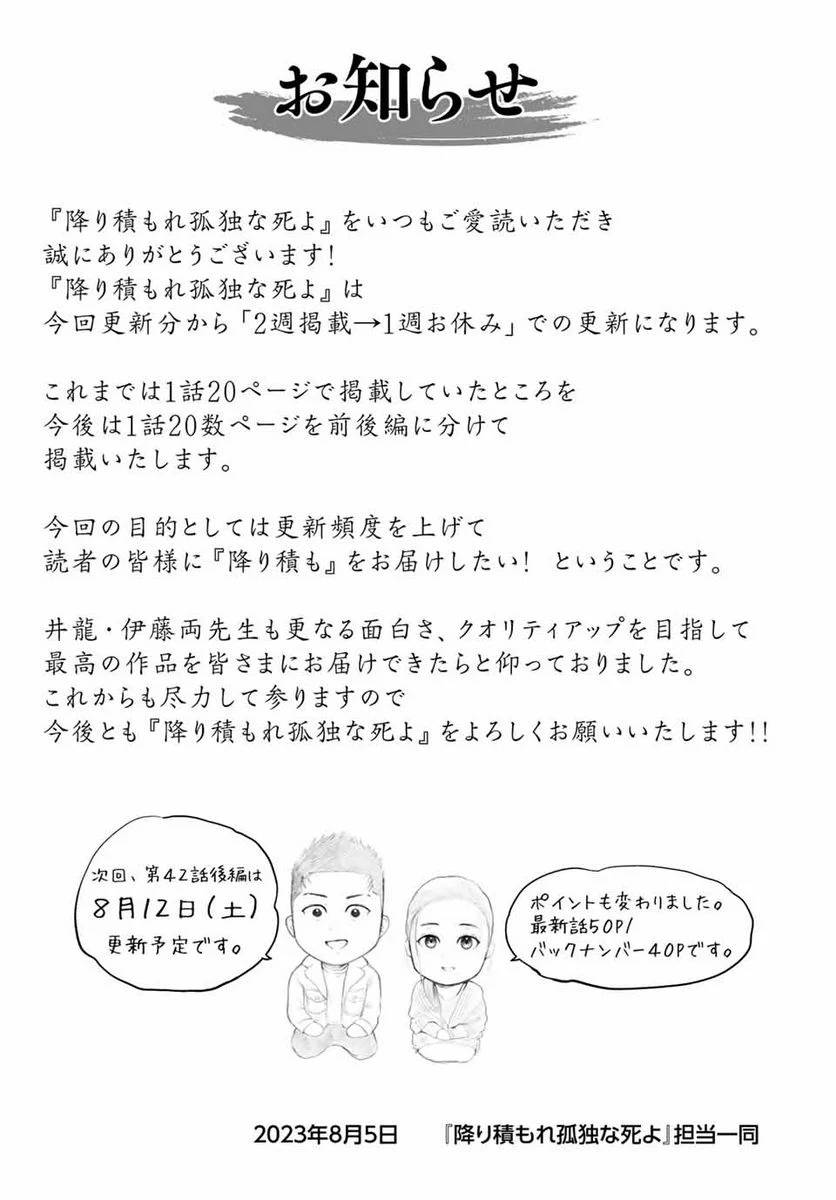 お知らせ
『降り積もれ孤独な死よ』をいつもご愛読いただき
誠にありがとうございます!
『降り積もれ孤独な死よ』は
今回更新分から「2週掲載→1週お休み」での更新になります。
これまでは1話20ページで掲載していたところを
今後は1話20数ページを前後編に分けて
掲載いたします。
今回の目的としては更新頻度を上げて
読者の皆様に『降り積も』をお届けしたい! ということです。
井龍・伊藤両先生も更なる面白さ、クオリティアップを目指して
最高の作品を皆さまにお届けできたらと仰っておりました。
これからも尽力して参りますので
今後とも『降り積もれ孤独な死よ』をよろしくお願いいたします!!
次回、第42話後編は
8月12日(土)
更新予定です。
ポイントも変わりました。
最新話50P/
バックナンバー40Pです。
2023年8月5日 『降り積もれ孤独な死よ』担当一同